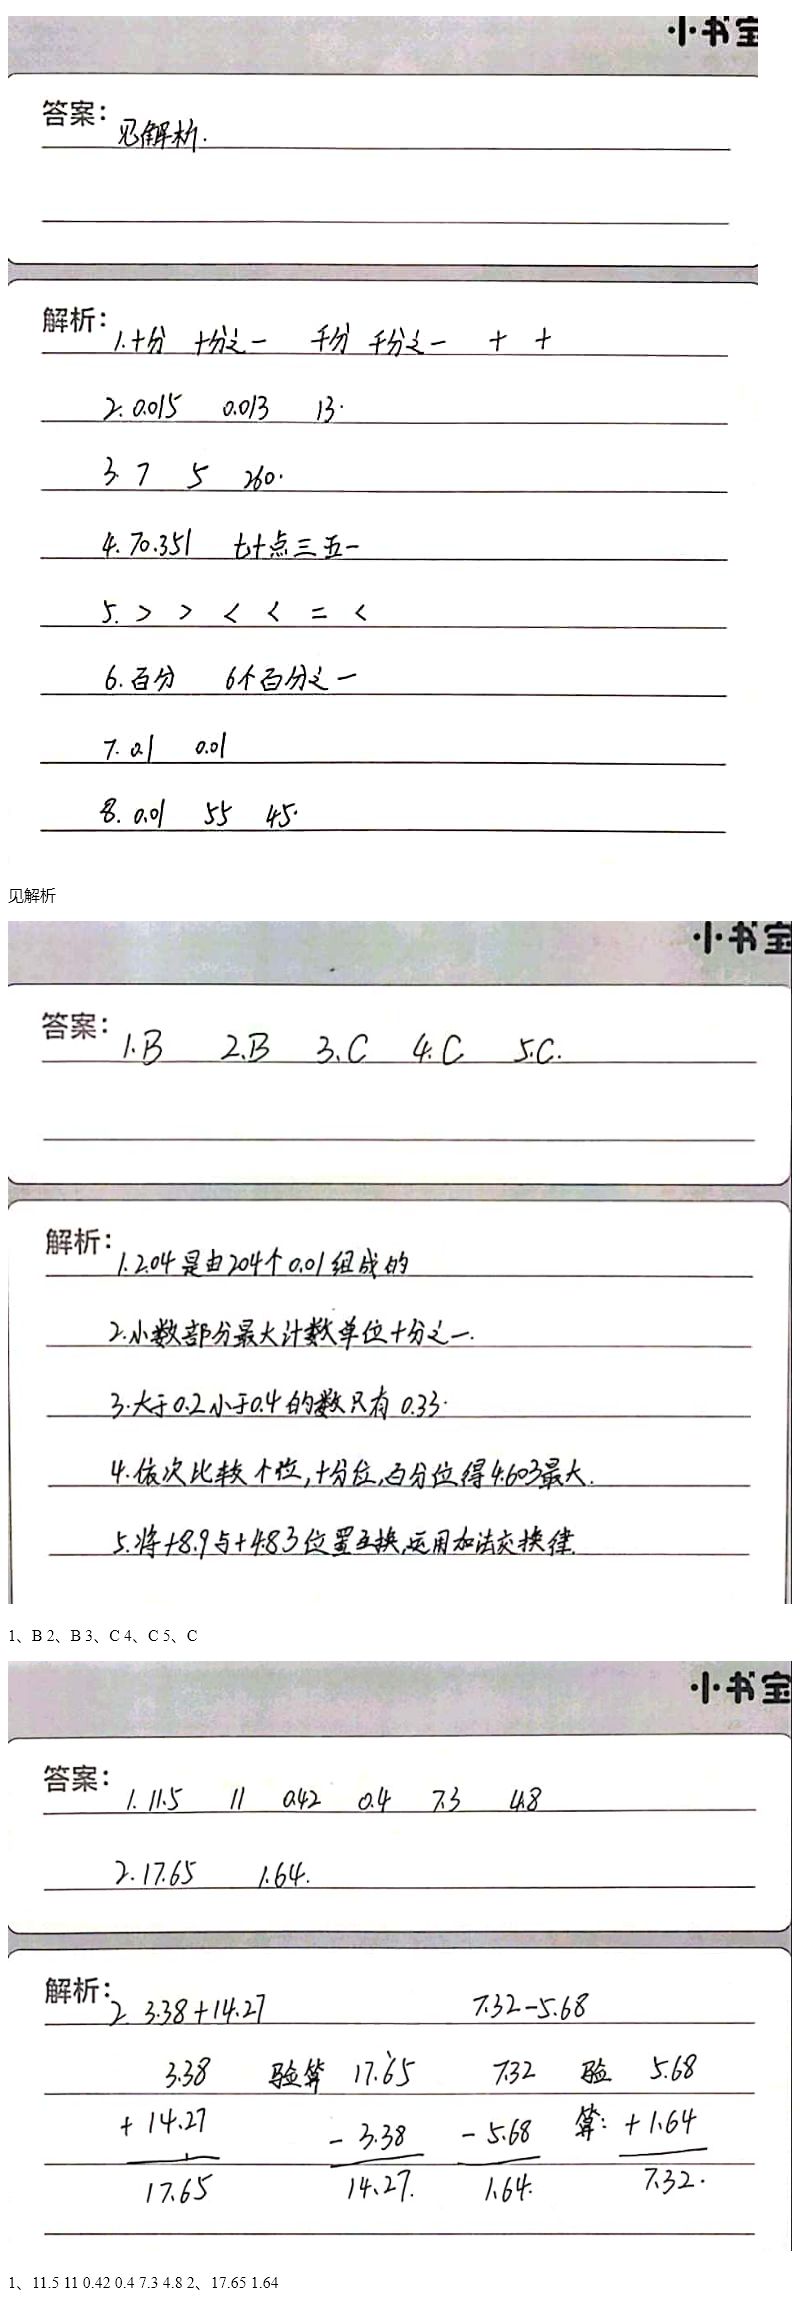 小书宝
答案：
见解析.
解析：
1.十分 十分之一 千分 千分之一 十 十
2.0.015 0.013 13.
3. 7 5 260.
4.70.351 七十点三五一
5. > > < < = <
6.百分 6个百分之一
7. 0.1 0.01
8. 0.01 55 45.
见解析
小书宝
答案：
1.B 2.B 3.C 4.C 5.C.
解析：
1.2.04是由204个0.01组成的
2.小数部分最大计数单位十分之一.
3.大于0.2小于0.4的数只有0.33.
4.依次比较个位,十分位,百分位得4.603最大.
5.将+8.9与+4.83位置互换,运用加法交换律.
1、B 2、B 3、C 4、C 5、C
小书宝
答案：
1. 11.5 11 0.42 0.4 7.3 4.8
2.17.65 1.64.
解析：
2. 3.38+14.27 7.32-5.68
3.38 验算 17.65 7.32 验 5.68
+ 14.27 - 3.38 - 5.68 算: + 1.64
17.65 14.27. 1.64. 7.32.
1、11.5 11 0.42 0.4 7.3 4.8 2、17.65 1.64